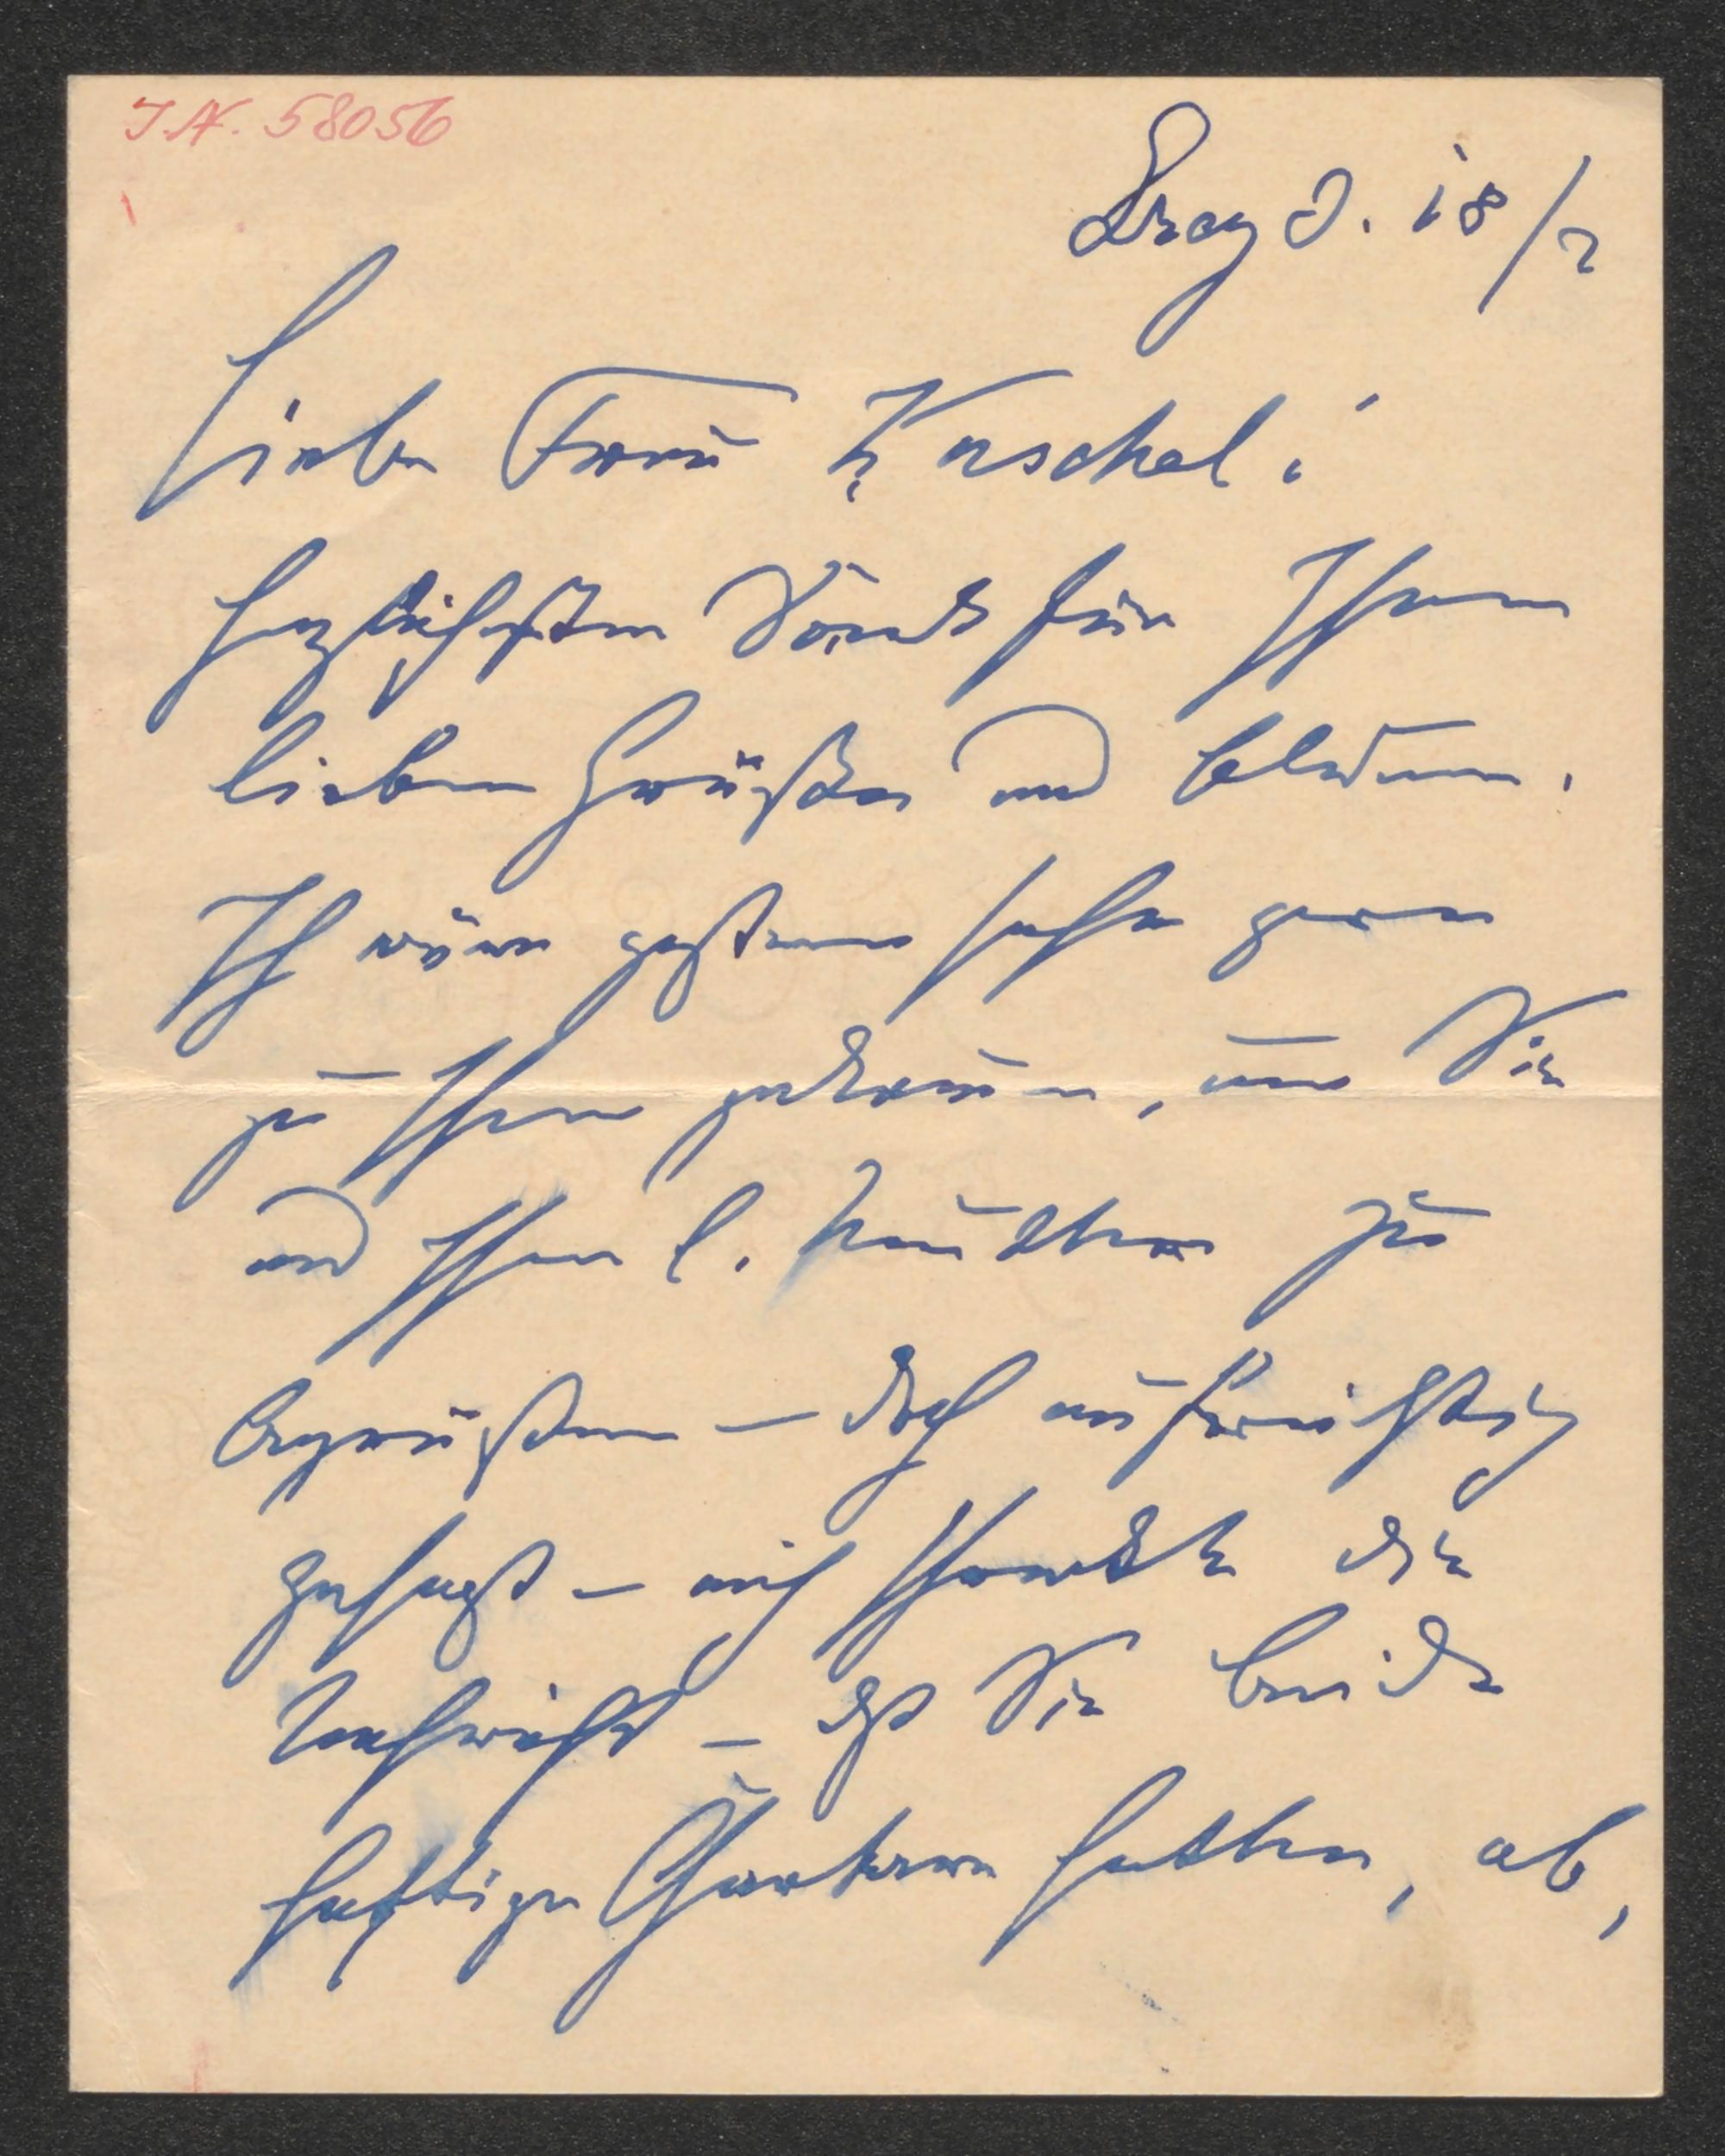 I.N. 58056
Graz d. 18/2
Liebe Frau Kuschel!
Herzlichsten Dank für Ihre
lieben Grüße und Blumen.
Ich wäre gestern sehr gern
zu Ihnen gekommen, um Sie
und Ihre l. Mutter zu
begrüßen – doch aufrichtig
gesagt – mich schreckte die
Nachricht – dß Sie beide
heftige Katarrhe hatten, ab,